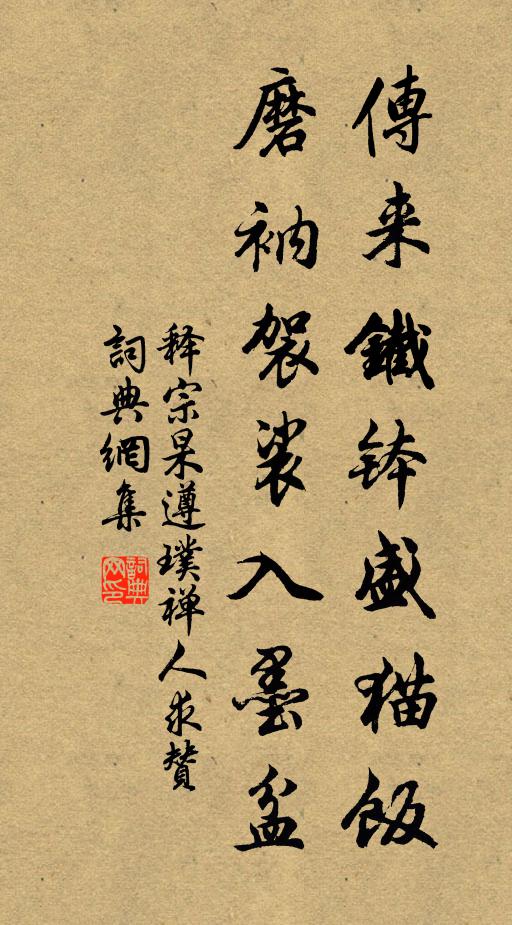 傳来鐵鉢盛猫飯
磨衲袈裟入墨盆
释宗杲遵璞禅人求贊
詞典網集
詞典网印